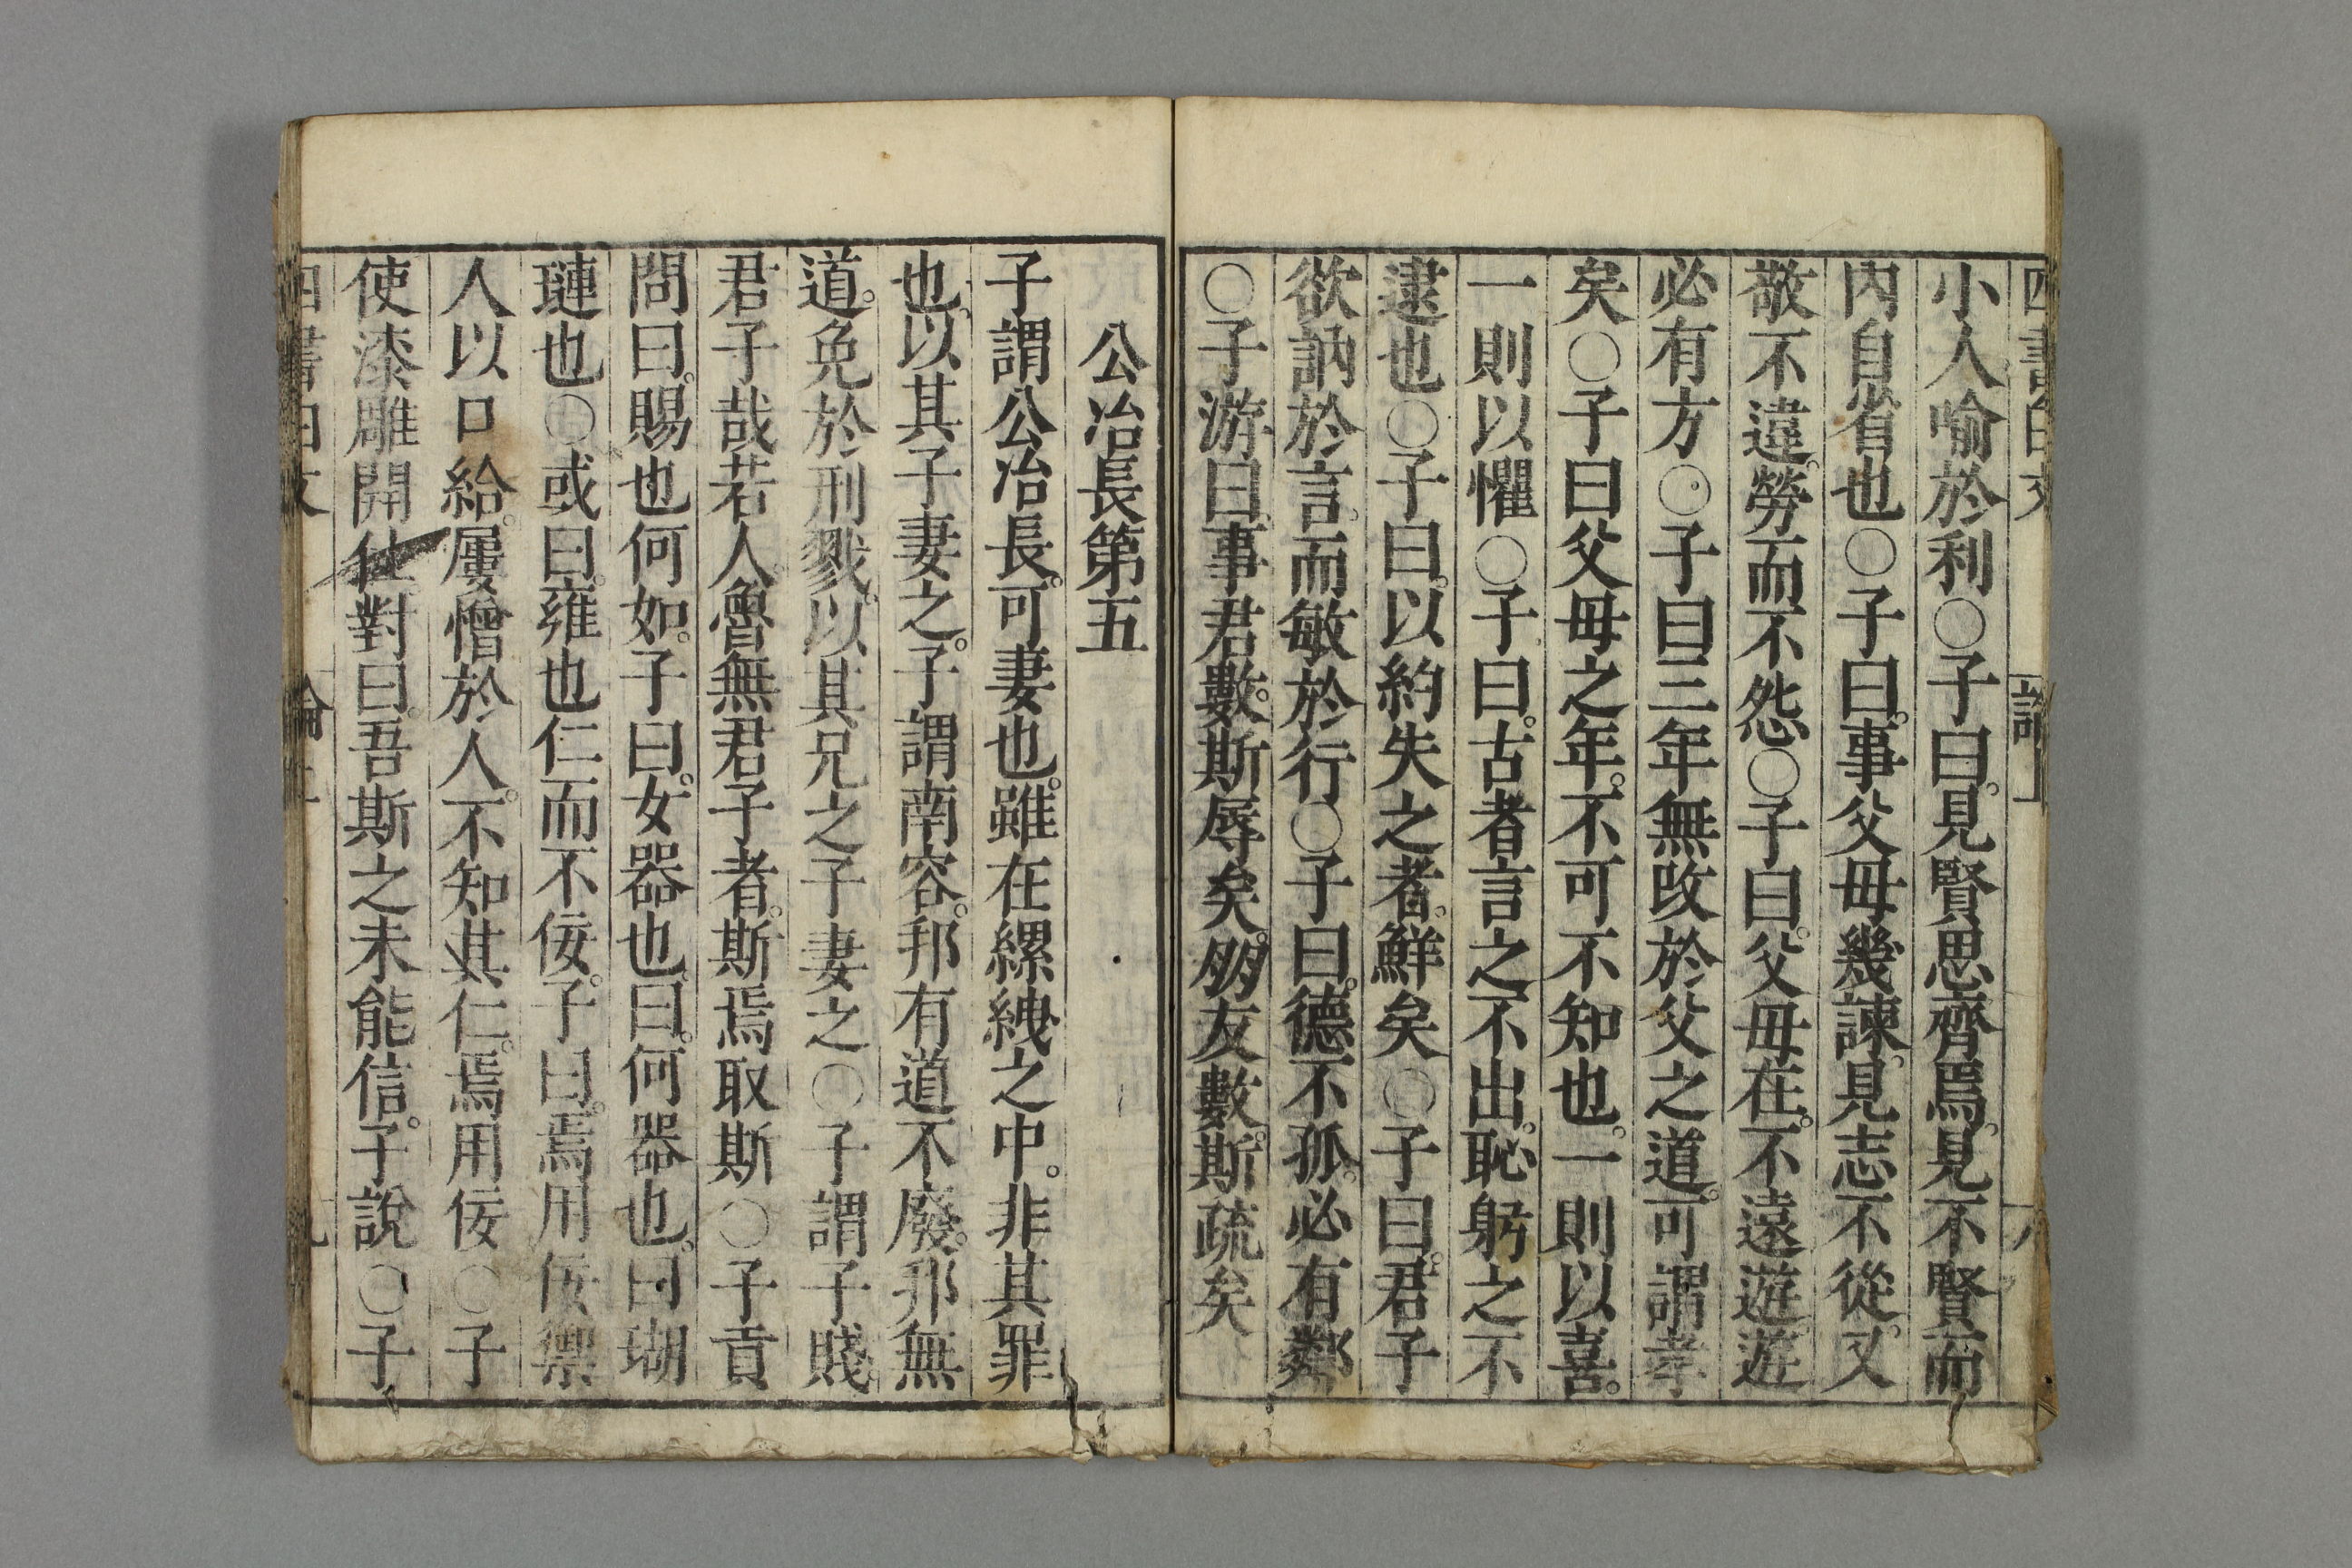 小人喻於利○子曰。見賢思齊焉。見不賢而
內自省也○子曰。事父母幾諫。見志不從。又
敬不違。勞而不怨○子曰。父母在。不遠遊。遊
必有方○子曰三年無改於父之道。可謂孝
矣○子曰父母之年。不可不知也。一則以喜。
一則以懼○子曰。古者言之不出。恥躬之不
逮也○子曰。以約失之者。鮮矣○子曰。君子
欲訥於言。而敏於行○子曰。德不孤。必有鄰
○子游曰。事君數。斯辱矣。朋友數。斯疏矣
公冶長第五
子謂公冶長。可妻也。雖在縲絏之中。非其罪
也。以其子妻之。子謂南容。邦有道不廢。邦無
道。免於刑戮。以其兄之子妻之○子謂子賤。
君子哉若人。魯無君子者。斯焉取斯○子貢
問曰。賜也何如。子曰。女器也。曰。何器也。曰瑚
璉也○或曰。雍也仁而不佞。子曰。焉用佞。禦
人以口給。屢憎於人。不知其仁。焉用佞○子
使漆雕開仕。對曰。吾斯之未能信。子說○子